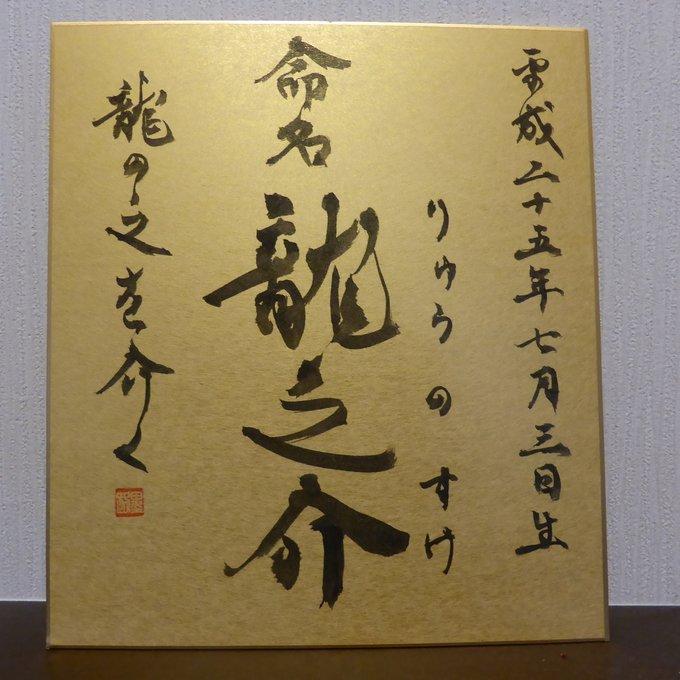 平成二十五年七月三日生
りゅうのすけ
命名
龍之介
龍の之
介く